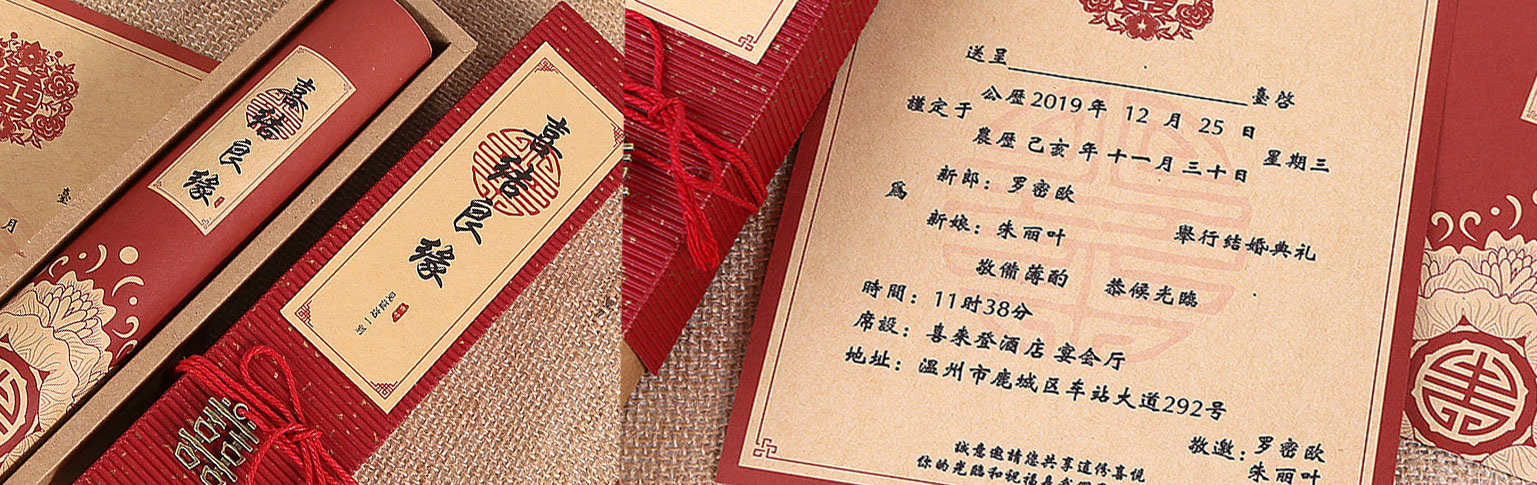 喜结良缘
臺
月
喜结良缘
送呈 臺啓
公歷2019年 12 月 25 日
謹定于 星期三
農歷己亥年十一月三十日
新郎：罗密欧
爲 舉行结婚典礼
新娘：朱丽叶
敬備薄酌 恭候光臨
時間：11时38分
席設：喜来登酒店宴会厅
地址：温州市鹿城区车站大道292号
敬邀：罗密欧
朱丽叶
誠意邀請您共享這份喜悦
你的光臨和祝福是我們